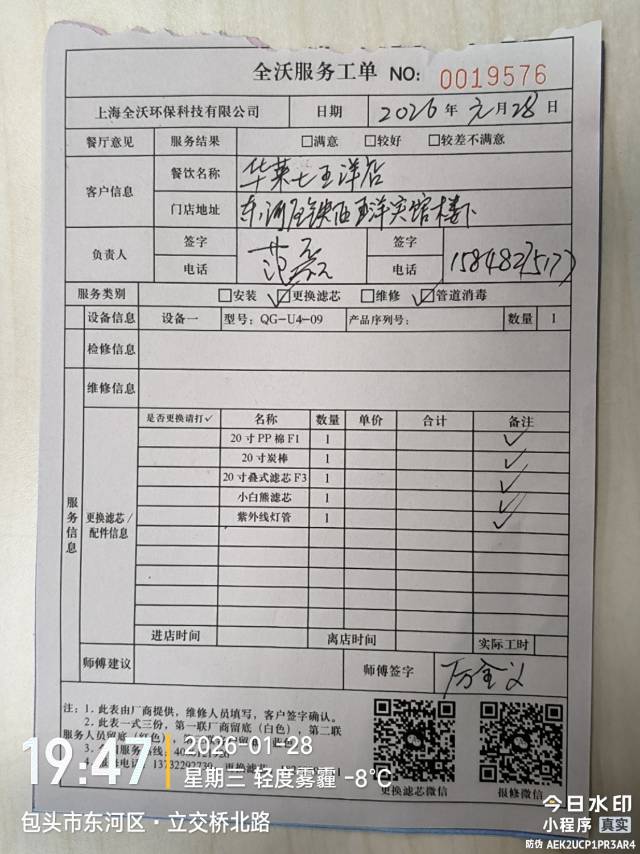 全沃服务工单 NO: 0019576
上海全沃环保科技有限公司 日期 2026 年 元 月 28 日
餐厅意见 服务结果 □满意 □较好 □较差不满意
客户信息 餐饮名称 华莱士王洋店
门店地址 东河区铁西王洋宾馆楼下
负责人 签字 签字
电话 电话 158482
服务类别 □安装 ☑更换滤芯 □维修 ☑管道消毒
设备信息 设备一 型号: QG-U4-09 产品序列号: 数量 1
检修信息
维修信息
服务信息
更换滤芯/配件信息
是否更换请打✓ 名称 数量 单价 合计 备注
20寸PP棉F1 1 ✓
20寸炭棒 1 ✓
20寸叠式滤芯F3 1 ✓
小白熊滤芯 1 ✓
紫外线灯管 1 ✓
进店时间 离店时间 实际工时
师傅建议 师傅签字
注: 1. 此表由厂商提供, 维修人员填写, 客户签字确认。
2. 此表一式三份, 第一联厂商留底(白色), 第二联
服务人员留底(红色),
更换滤芯微信 报修微信
19:47 2026-01-28
星期三 轻度雾霾 -8℃
包头市东河区·立交桥北路
今日水印
小程序 真实
防伪 AEK2UCP1PR3AR4